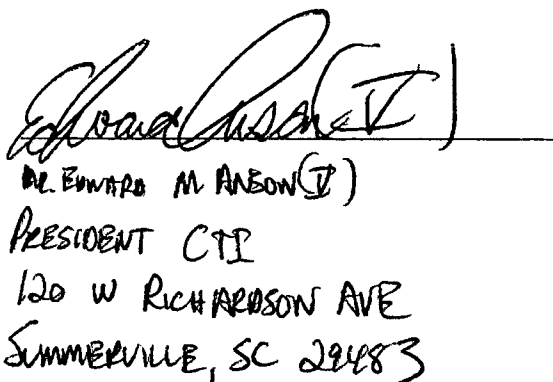 Edward Anson (V)
DR. EDWARD M ANSON (V)
PRESIDENT CTI
120 W RICHARDSON AVE
SUMMERVILLE, SC 29483